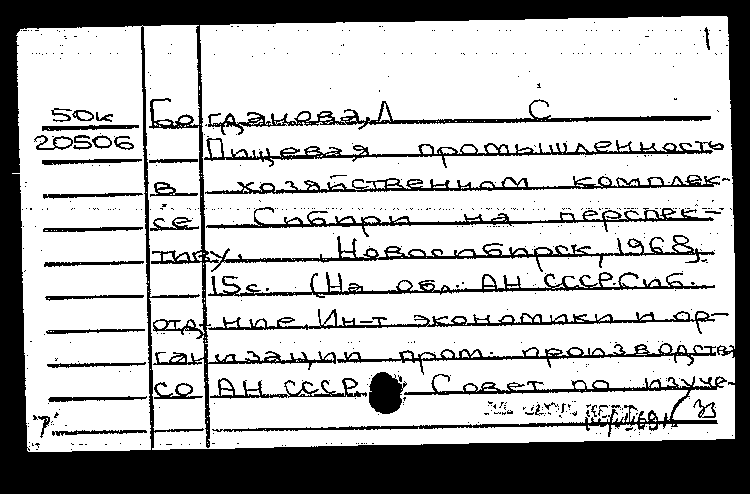 1
50к Богданова, Л С
20506 Пищевая промышленность
в хозяйственном комплек-
се Сибири на перспек-
тиву. Новосибирск, 1968,
15с. (На обл.: АН СССР. Сиб.
отд-ние. Ин-т экономики и ор-
ганизации пром. производства
СО АН СССР. Совет по изуче-
33